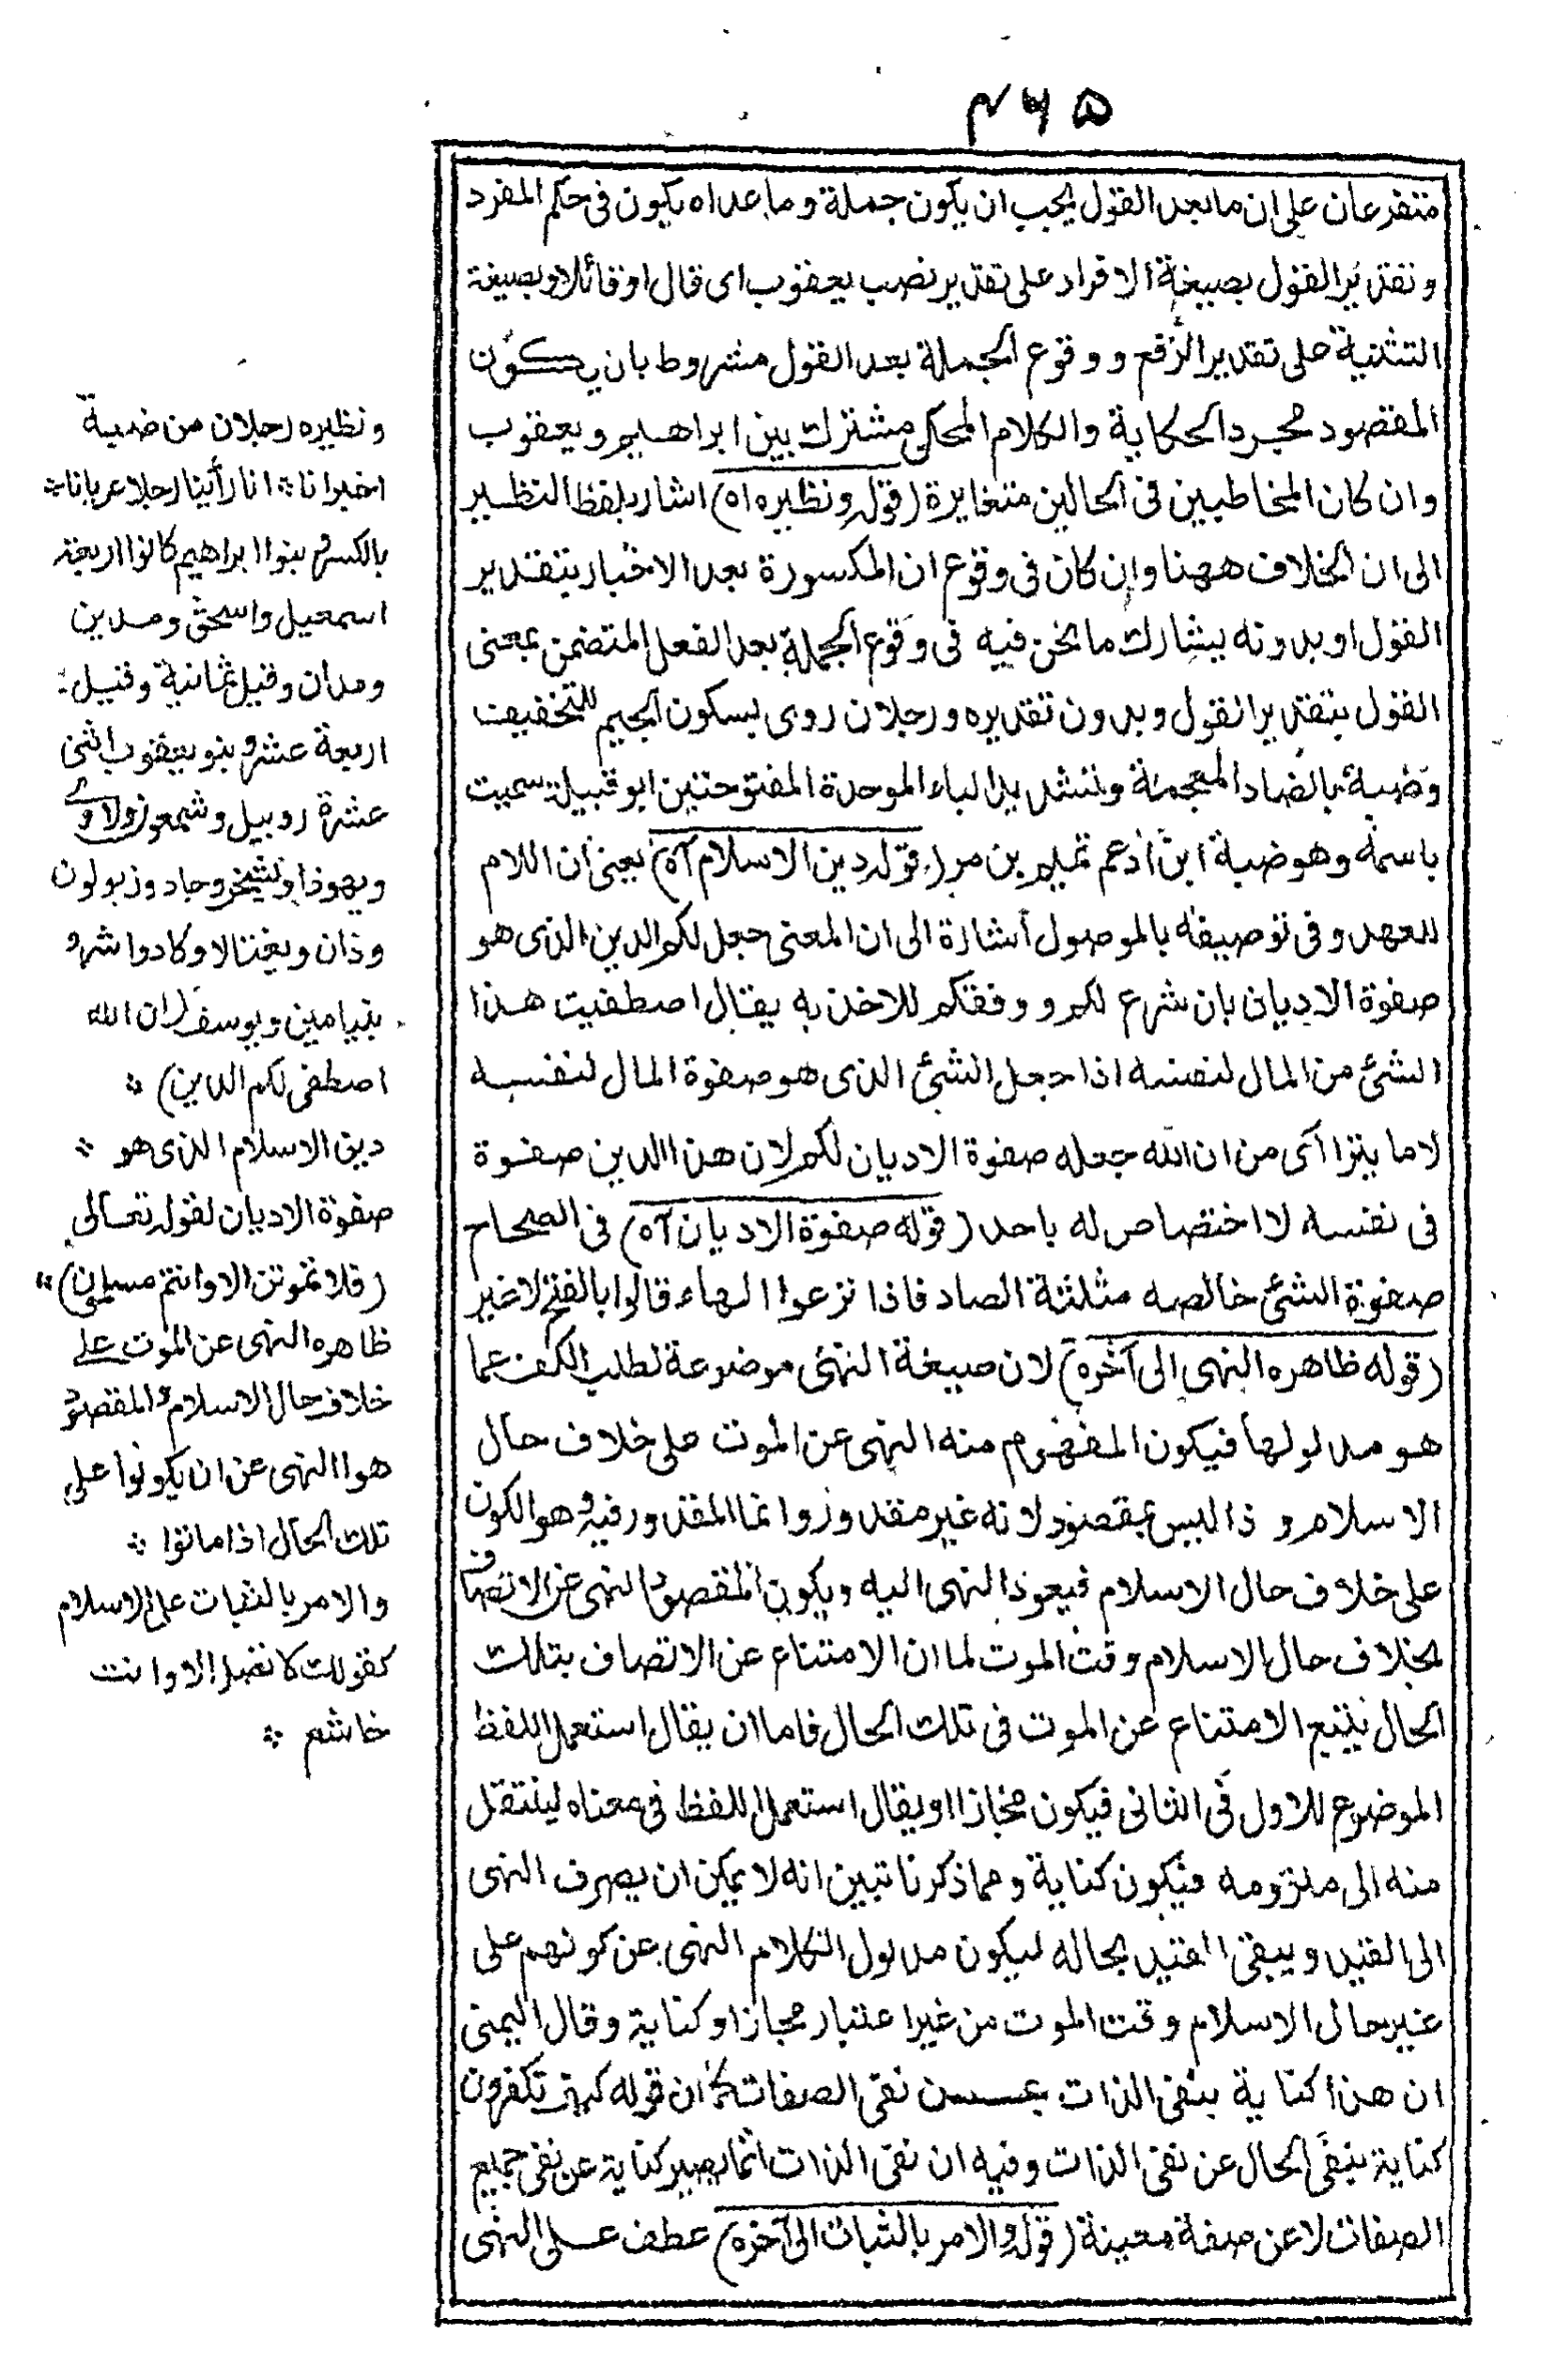 ٤٦٥
متفرعان على ان ما بعد القول يجب ان يكون جملة وما عداه يكون فى حكم المفرد
وتقدير القول بصيغة الافراد على تقدير نصب يعقوب اى قال او قائلا وبصيغة
التثنية على تقدير الرفع ووقوع الجملة بعد القول مشروط بان يكون
المقصود مجرد الحكاية والكلام المحكى مشترك بين ابراهيم ويعقوب
وان كان المخاطبين فى الحالين متغايرة (قوله ونظيره اه) اشار بلفظ النظير
الى ان الخلاف ههنا وان كان فى وقوع ان المكسورة بعد الاخبار بتقدير
القول او بدونه يشارك ما نحن فيه فى وقوع الجملة بعد الفعل المتضمن بمعنى
القول بتقدير القول وبدون تقديره ورجلان روى بسكون الجيم للتخفيف
وضبة بالضاد المعجمة وتشديد الباء الموحدة المفتوحتين ابو قبيلة سميت
باسمه وهو ضبة ابن اد عم تميم بن مر (قوله دين الاسلام آه) يعنى ان اللام
للعهد وفى توصيفه بالموصول اشارة الى ان المعنى جعل لكم الدين الذى هو
صفوة الاديان بان شرع لكم ووفقكم للاخذ به يقال اصطفيت هذا
الشئ من المال لنفسه اذا جعل الشئ الذى هو صفوة المال لنفسه
لا ما يتراآى من ان الله جعله صفوة الاديان لكم لان هذا الدين صفوة
فى نفسه لا اختصاص له باحد (قوله صفوة الاديان آه) فى الصحاح
صفوة الشئ خالصه مثلثة الصاد فاذا نزعوا الهاء قالوا بالفتح لا غير
(قوله ظاهره النهى الى آخره) لان صيغة النهى موضوعة لطلب الكف عما
هو مدلولها فيكون المفهوم منه النهى عن الموت على خلاف حال
الاسلام وذا ليس بمقصود لانه غير مقدور وانما المقدور فيه هو الكون
على خلاف حال الاسلام فيعود النهى اليه ويكون المقصود النهى عن الاتصاف
بخلاف حال الاسلام وقت الموت لما ان الامتناع عن الاتصاف بتلك
الحال يتبع الامتناع عن الموت فى تلك الحال فاما ان يقال استعمل اللفظ
الموضوع للاول فى الثانى فيكون مجازا او يقال استعمل اللفظ فى معناه لينتقل
منه الى ملزومه فيكون كناية ومما ذكرنا تبين انه لا يمكن ان يصرف النهى
الى القيد ويبقى المقيد بحاله ليكون مدلول الكلام النهى عن كونهم على
غير حال الاسلام وقت الموت من غير اعتبار مجاز او كناية وقال اليمنى
ان هذا كناية بنفى الذات عن نفى الصفات كما ان قوله كيف تكفرون
كناية بنفى الحال عن نفى الذات وفيه ان نفى الذات انما يصير كناية عن نفى جميع
الصفات لا عن صفة معينة (قوله والامر بالثبات الى آخره) عطف على النهى
ونظيره رجلان من ضبة
اخبرانا * انا رأينا رجلا عريانا *
بالكسر وبنو ابراهيم كانوا اربعة
اسمعيل واسحق ومدين
ومدان وقيل ثمانية وقيل
اربعة عشر وبنو يعقوب اثنى
عشرة روبيل وشمعون ولاوى
ويهوذا ويشيخر وجاد وزبولون
وذان ويفتالا وكادوا شر و
بنيامين ويوسف (ان الله
اصطفى لكم الدين) *
دين الاسلام الذى هو *
صفوة الاديان لقوله تعالى
(فلا تموتن الا وانتم مسلمون) *
ظاهره النهى عن الموت على
خلاف حال الاسلام والمقصود
هو النهى عن ان يكونوا على
تلك الحال اذا ماتوا *
والامر بالثبات على الاسلام
كقولك لا تصل الا وانت
خاشع *